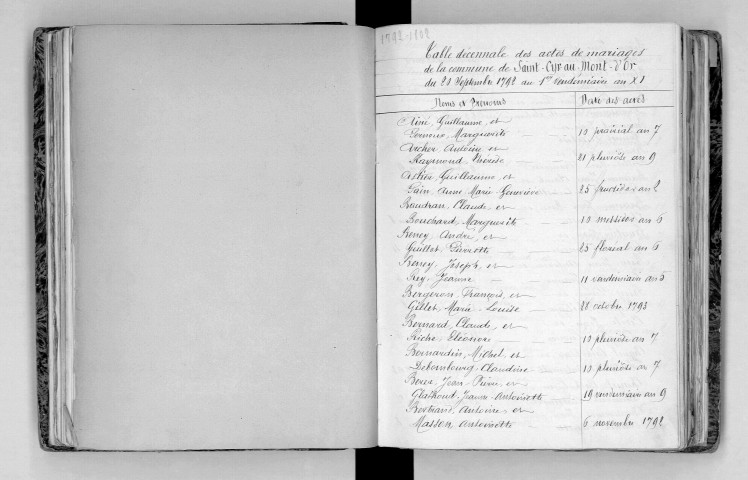 1792-1802
Table décennale des actes de mariages
de la commune de Saint-Cyr-au-Mont-d'Or
du 21 Septembre 1792 au 1er vendémiaire an XI
Noms et Prénoms Date des actes
Guillaume, et
Marguerite 10 prairial an 7
Archer, Antoine, et
Raymond, Thérèse 21 pluviôse an 9
Astier, Guillaume, et
Gain Anne Marie Geneviève 25 fructidor an 2
Baudran, Claude, et
Bouchard, Marguerite 10 messidor an 6
Berrey, André, et
Guillet, Pierrette 25 floréal an 6
Berrey, Joseph, et
Rey, Jeanne 11 vendémiaire an 5
Bergeron, François, et
Gillet, Marie-Louise 28 octobre 1793
Bernard, Claude, et
Riche, Eléonore 10 pluviôse an 7
Bernardin, Michel, et
Debombourg, Claudine 10 pluviôse an 7
Jean Pierre, et
Jeanne-Antoinette 19 vendémiaire an 9
Antoine, et
Masson, Antoinette 6 novembre 1792